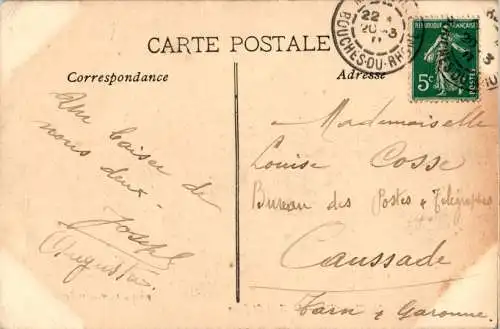 CARTE POSTALE
Correspondance
Adresse
22
20-3
11
BOUCHES-DU-RHÔNE
REPUBLIQUE FRANÇAISE
5c
POSTES
Un baiser de
nous deux.
Joseph
Augustin
Mademoiselle
Louise Cosse
Bureau des Postes & Télégraphes
Caussade
Tarn & Garonne.